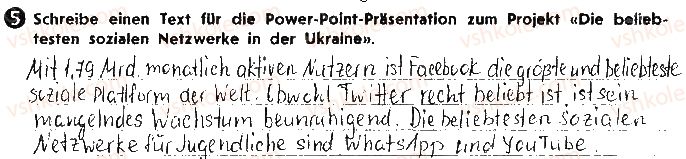 5 Schreibe einen Text für die Power-Point-Präsentation zum Projekt «Die belieb-
testen sozialen Netzwerke in der Ukraine».
Mit 1,79 Mrd. monatlich aktiven Nutzern ist Facebook die größte und beliebteste
soziale Plattform der Welt. Obwohl Twitter recht beliebt ist, ist sein
mangelndes Wachstum beunruhigend. Die beliebtesten sozialen
Netzwerke für Jugendliche sind WhatsApp und YouTube.